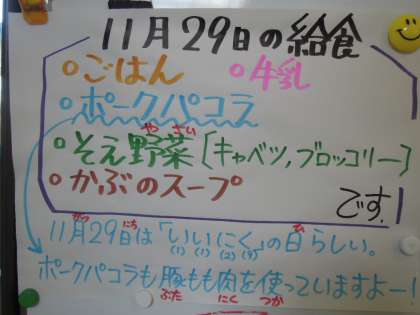 11月29日の給食
・ごはん ・牛乳
・ポークパコラ
や さい
・そえ野菜〔キャベツ,ブロッコリー〕
・かぶのスープ
です.
がつ にち ひ
11月29日は「いいにく」の日らしい。
(1) (1) (2) (9)
ポークパコラも豚もも肉を使っていますよー!
ぶた にく つか